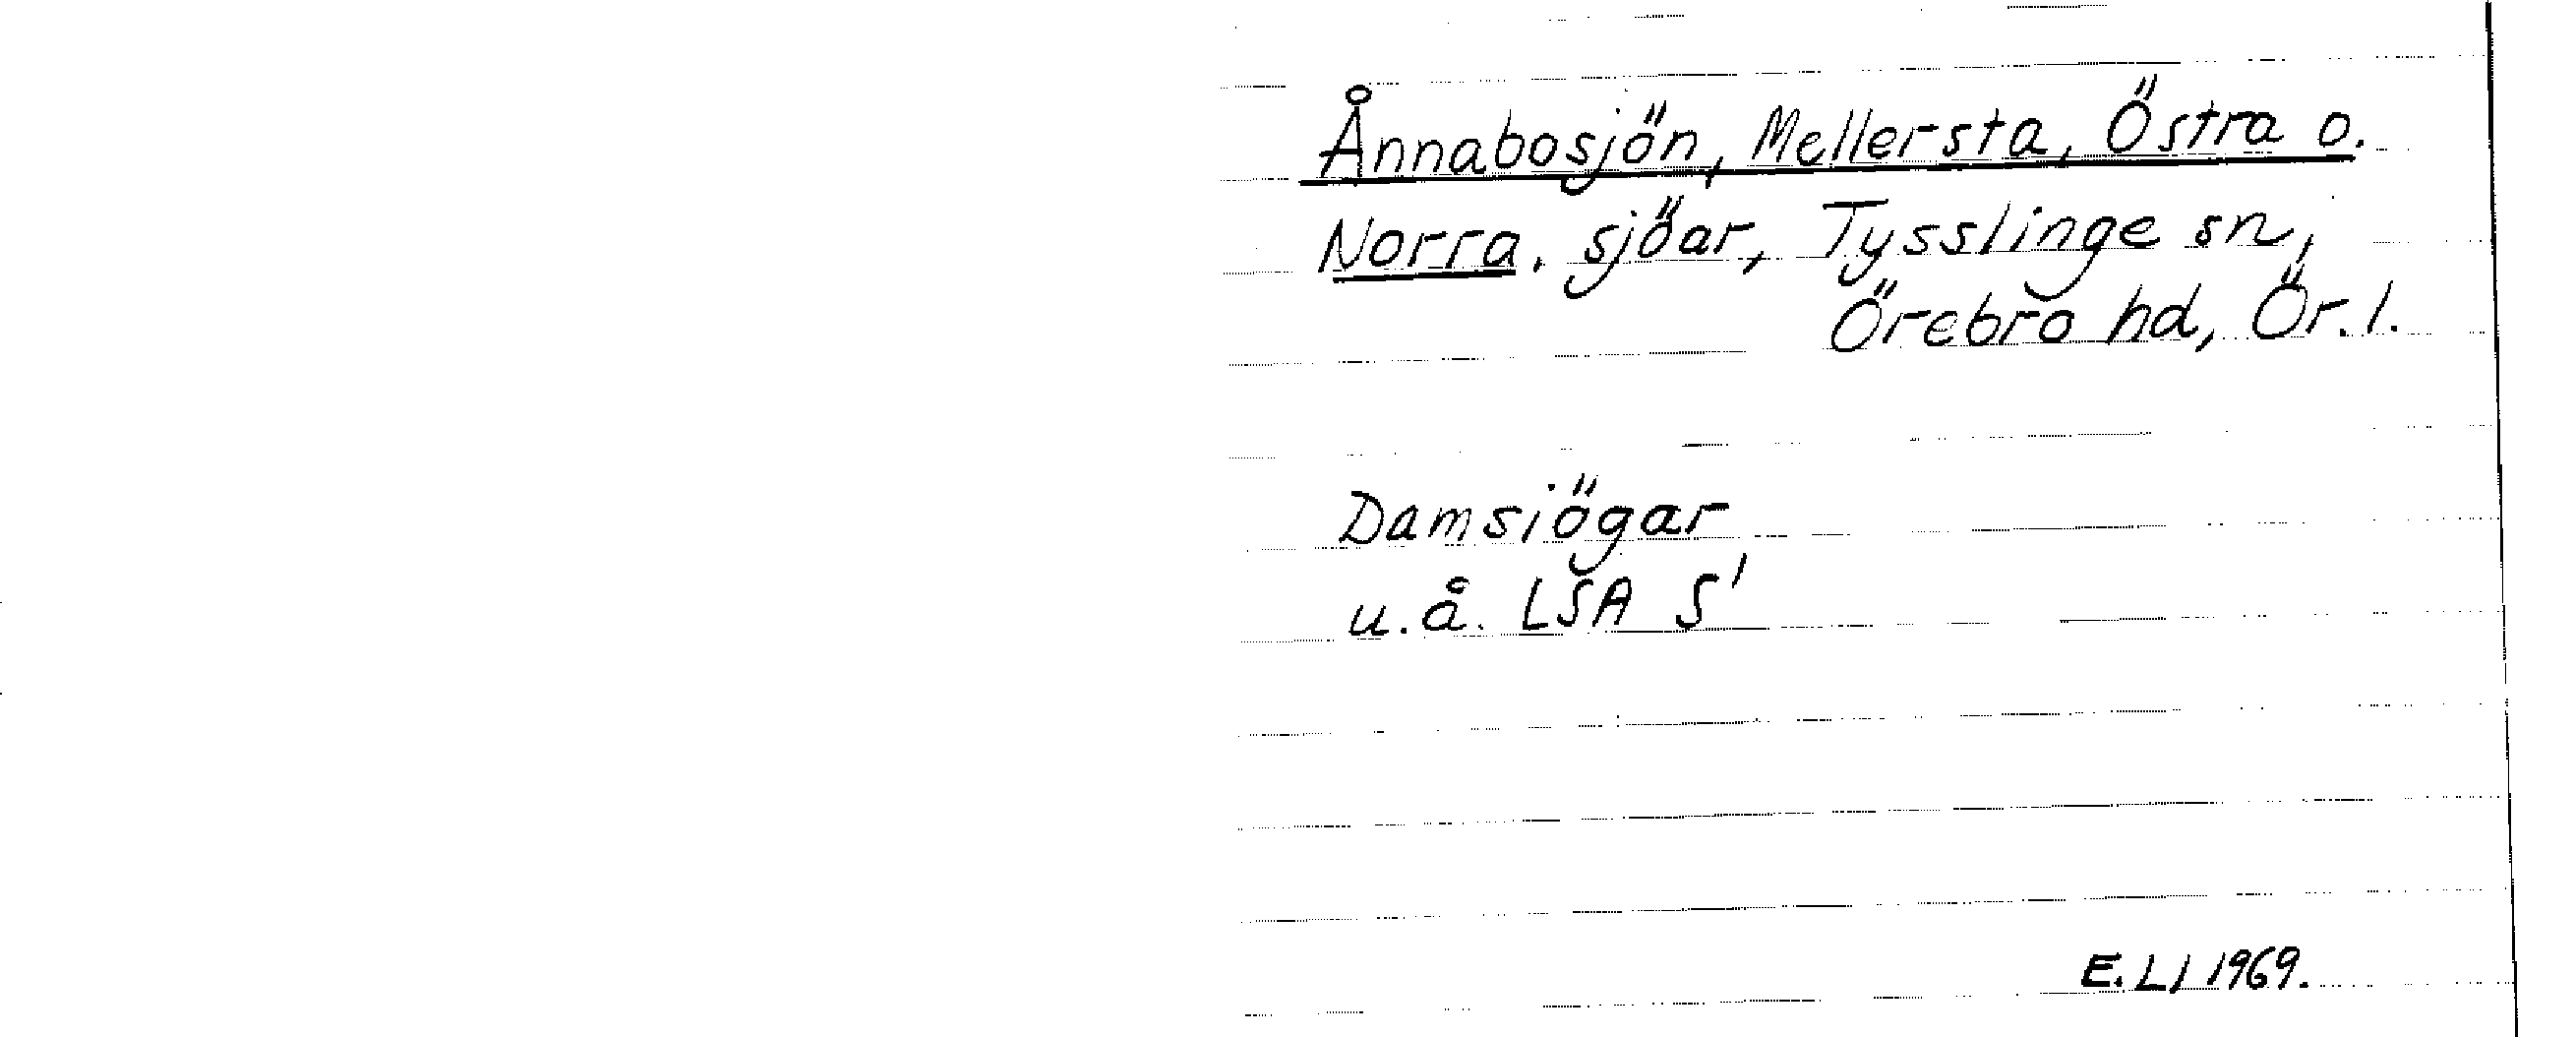 Ånnabosjön, Mellersta, Östra o.
Norra. sjöar, Tysslinge sn,
Örebro hd, Ör. l.
Damsiögar
u.å. LSA S'
E. LJ 1969.